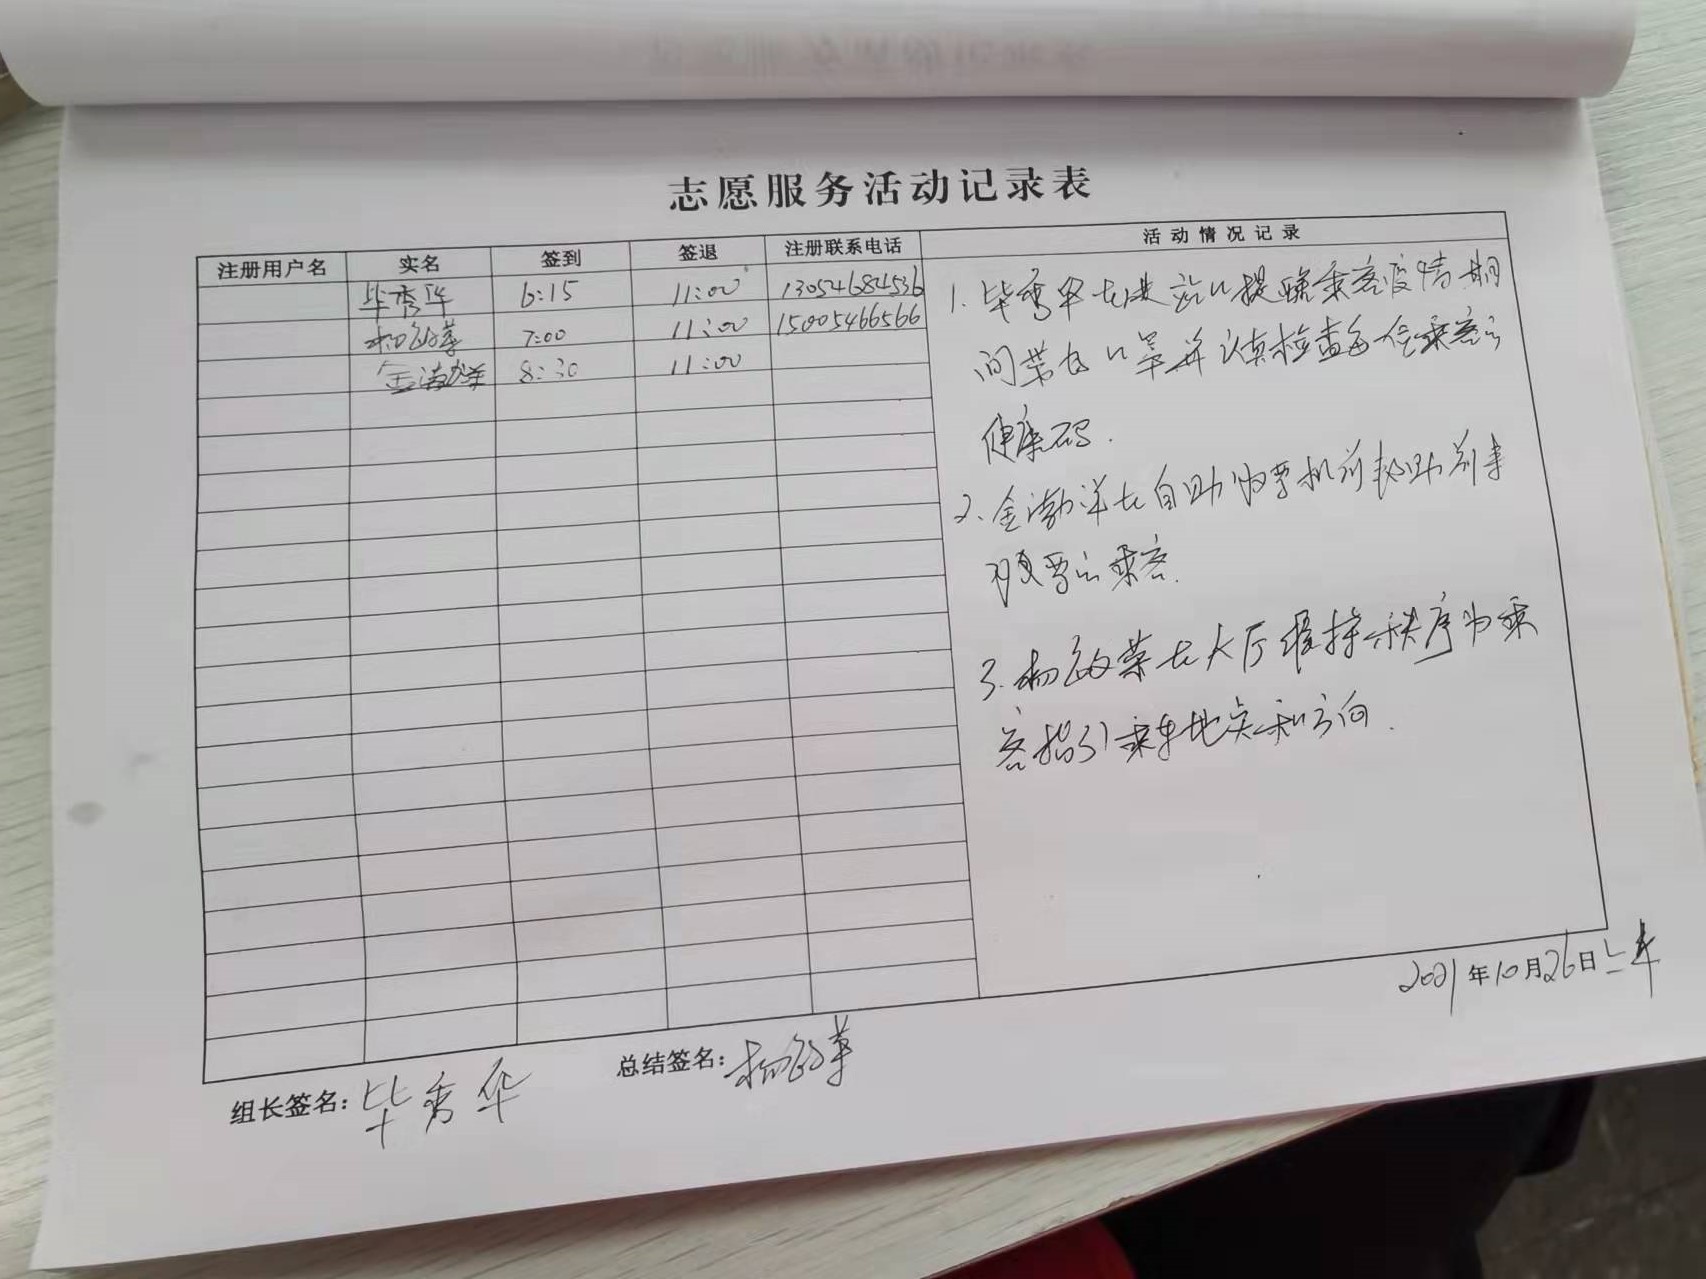 志愿服务活动记录表
注册用户名 实名 签到 签退 注册联系电话 活动情况记录
毕秀华 6:15 11:00 13054684536
杨敏菜 7:00 11:00 15005466566
金渤洋 8:30 11:00
1. 毕秀华在进站口提醒乘客疫情期
间带好口罩并认真检查每一位乘客的
健康码.
2、金渤洋在自助购票机前帮助前来
购票的乘客.
3. 杨敏菜在大厅维持秩序为乘
客指引乘车地点和方向.
2021年10月26日上午
组长签名: 毕秀华 总结签名: 杨敏菜